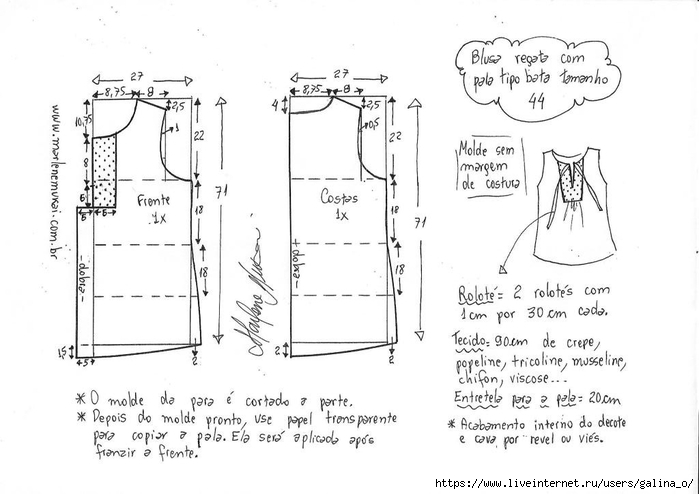 27
8,75
8
2,5
10,75
1
22
8
6
5
5
Frente
1x
71
18
18
-dobra-
1,5
5
2
www.marlenemukai.com.br
27
8,75
8
4
2,5
0,5
22
Costas
1x
71
18
18
-dobra-
2
2
Marlene Mukai
Blusa regata com
pala tipo bata tamanho
44
Molde sem
margem
de costura
Roloté= 2 rolotés com
1cm por 30cm cada.
Tecido= 90cm de crepe,
popeline, tricoline, musseline,
chifon, viscose...
Entretela para a pala= 20cm
* Acabamento interno do decote
e cava por revel ou viés.
* O molde da para é cortado a parte.
* Depois do molde pronto, use papel transparente
para copiar a pala. Ela será aplicada após
franzir a frente.
https://www.liveinternet.ru/users/galina_o/